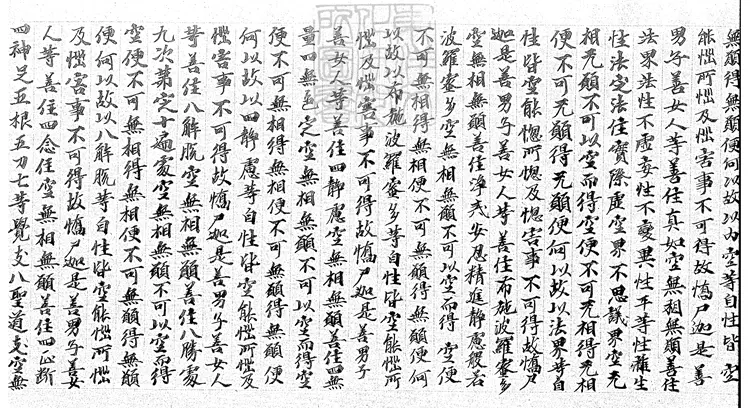 無願得無願便何以故以內空等自性皆空
能惱所惱及惱害事不可得故憍尸迦是善
男子善女人等善住真如空無相無願善住
法界法性不虛妄性不變異性平等性離生
性法定法住實際虛空界不思議界空无
相无願不可以空而得空便不可无相得无相
便不可无願得无願便何以故以法界等自
性皆空能惱所惱及惱害事不可得故憍尸
迦是善男子善女人等善住布施波羅蜜多
空無相無願善住淨戒安忍精進靜慮般若
波羅蜜多空無相無願不可以空而得空便
不可無相得無相便不可無願得無願便何
以故以布施波羅蜜多等自性皆空能惱所
惱及惱害事不可得故憍尸迦是善男子
善女人等善住四靜慮空無相無願善住四無
量四無色定空無相無願不可以空而得空
便不可無相得無相便不可無願得無願便
何以故以四靜慮等自性皆空能惱所惱及
惱害事不可得故憍尸迦是善男子善女人
等善住八解脫空無相無願善住八勝處
九次第定十遍處空無相無願不可以空而得
空便不可無相得無相便不可無願得無願
便何以故以八解脫等自性皆空能惱所惱
及惱害事不可得故憍尸迦是善男子善女
人等善住四念住空無相無願善住四正斷
四神足五根五力七等覺支八聖道支空無